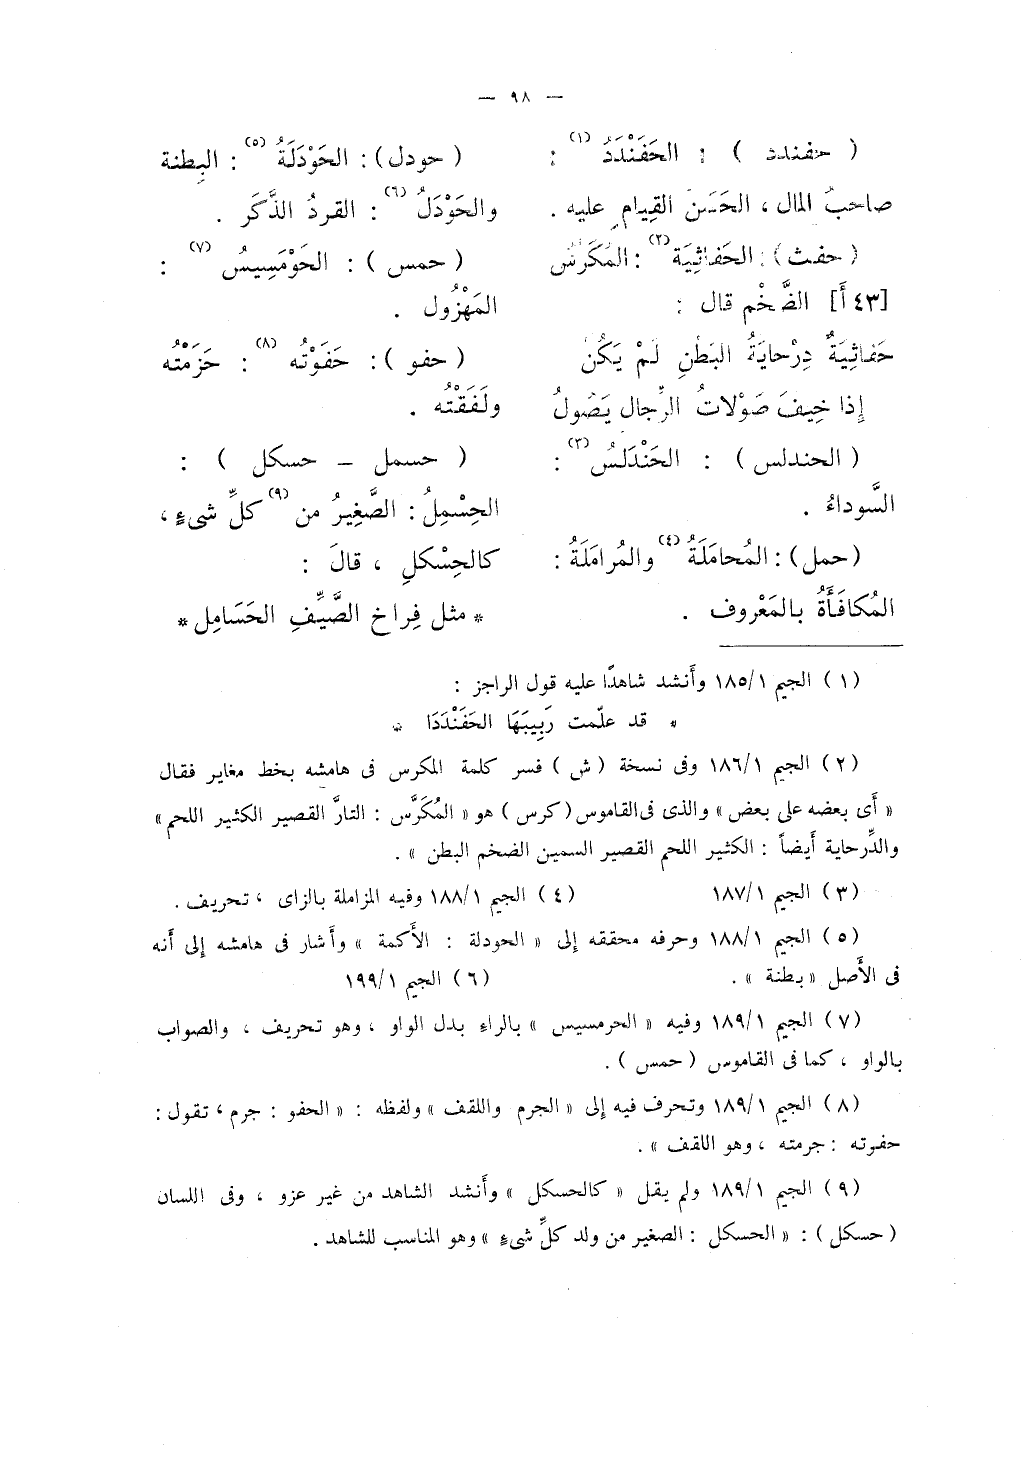 — ٩٨ —
( حفندد ) : الحَفَنْدَدُ (١) :
صاحبُ المال ، الحَسَن القِيام عليه .
( حفث ) : الحَفاثِيَة (٢) : المُكَرَّسُ
[٤٣ أ] الضَّخْم قال :
حَفاثِيَةٌ دِرْحايَةُ البَطْنِ لَمْ يَكُنْ
إذا خِيفَ صَوْلاتُ الرِّجال يَصُولُ
( الحندلس ) : الحَنْدَلسُ (٣) :
السَّوداءُ .
(حمل) : المُحامَلَةُ (٤) والمُرامَلَةُ :
المُكافَأَةُ بالمَعْروف .
( حودل) : الحَوْدَلَةُ (٥) : البِطنة
والحَوْدَلُ (٦) : القردُ الذَّكَر .
( حمس ) : الحَوْمَسِيسُ (٧) :
المَهْزُول .
( حفو ) : حَفَوْتُه (٨) : حَزَمْتُه
ولَفَقْتُه .
( حسمل ــ حسكل ) :
الحِسْمِلُ : الصَّغِيرُ من (٩) كلِّ شىءٍ ،
كالحِسْكلِ ، قالَ :
* مثل فِراخِ الصَّيِّفِ الحَسَامِل *
(١) الجيم ١٨٥/١ وأَنشد شاهدًا عليه قول الراجز :
* قد علّمت رَبِيبَهَا الحَفَنْدَدَا *
(٢) الجيم ١٨٦/١ وفى نسخة (ش) فسر كلمة المكرس فى هامشه بخط مغاير فقال
« أَى بعضه على بعض » والذى فى القاموس (كرس) هو « المُكَرَّس : التارّ القصير الكثير اللحم »
والدِّرحاية أَيضاً : الكثير اللحم القصير السمين الضخم البطن » .
(٣) الجيم ١٨٧/١ (٤) الجيم ١٨٨/١ وفيه المزاملة بالزاى ، تحريف .
(٥) الجيم ١٨٨/١ وحرفه محققه إلى « الحودلة : الأَكمة » وأشار فى هامشه إلى أنه
فى الأَصل « بطنة » . (٦) الجيم ١٩٩/١
(٧) الجيم ١٨٩/١ وفيه « الحرمسيس » بالراءِ بدل الواو ، وهو تحريف ، والصواب
بالواو ، كما فى القاموس (حمس) .
(٨) الجيم ١٨٩/١ وتحرف فيه إلى « الجرم واللقف » ولفظه : « الحفو : جرم ، تقول :
حفوته : جرمته ، وهو اللقف » .
(٩) الجيم ١٨٩/١ ولم يقل « كالحسكل » وأَنشد الشاهد من غير عزو ، وفى اللسان
(حسكل) : « الحسكل : الصغير من ولد كلِّ شىءٍ » وهو المناسب للشاهد .